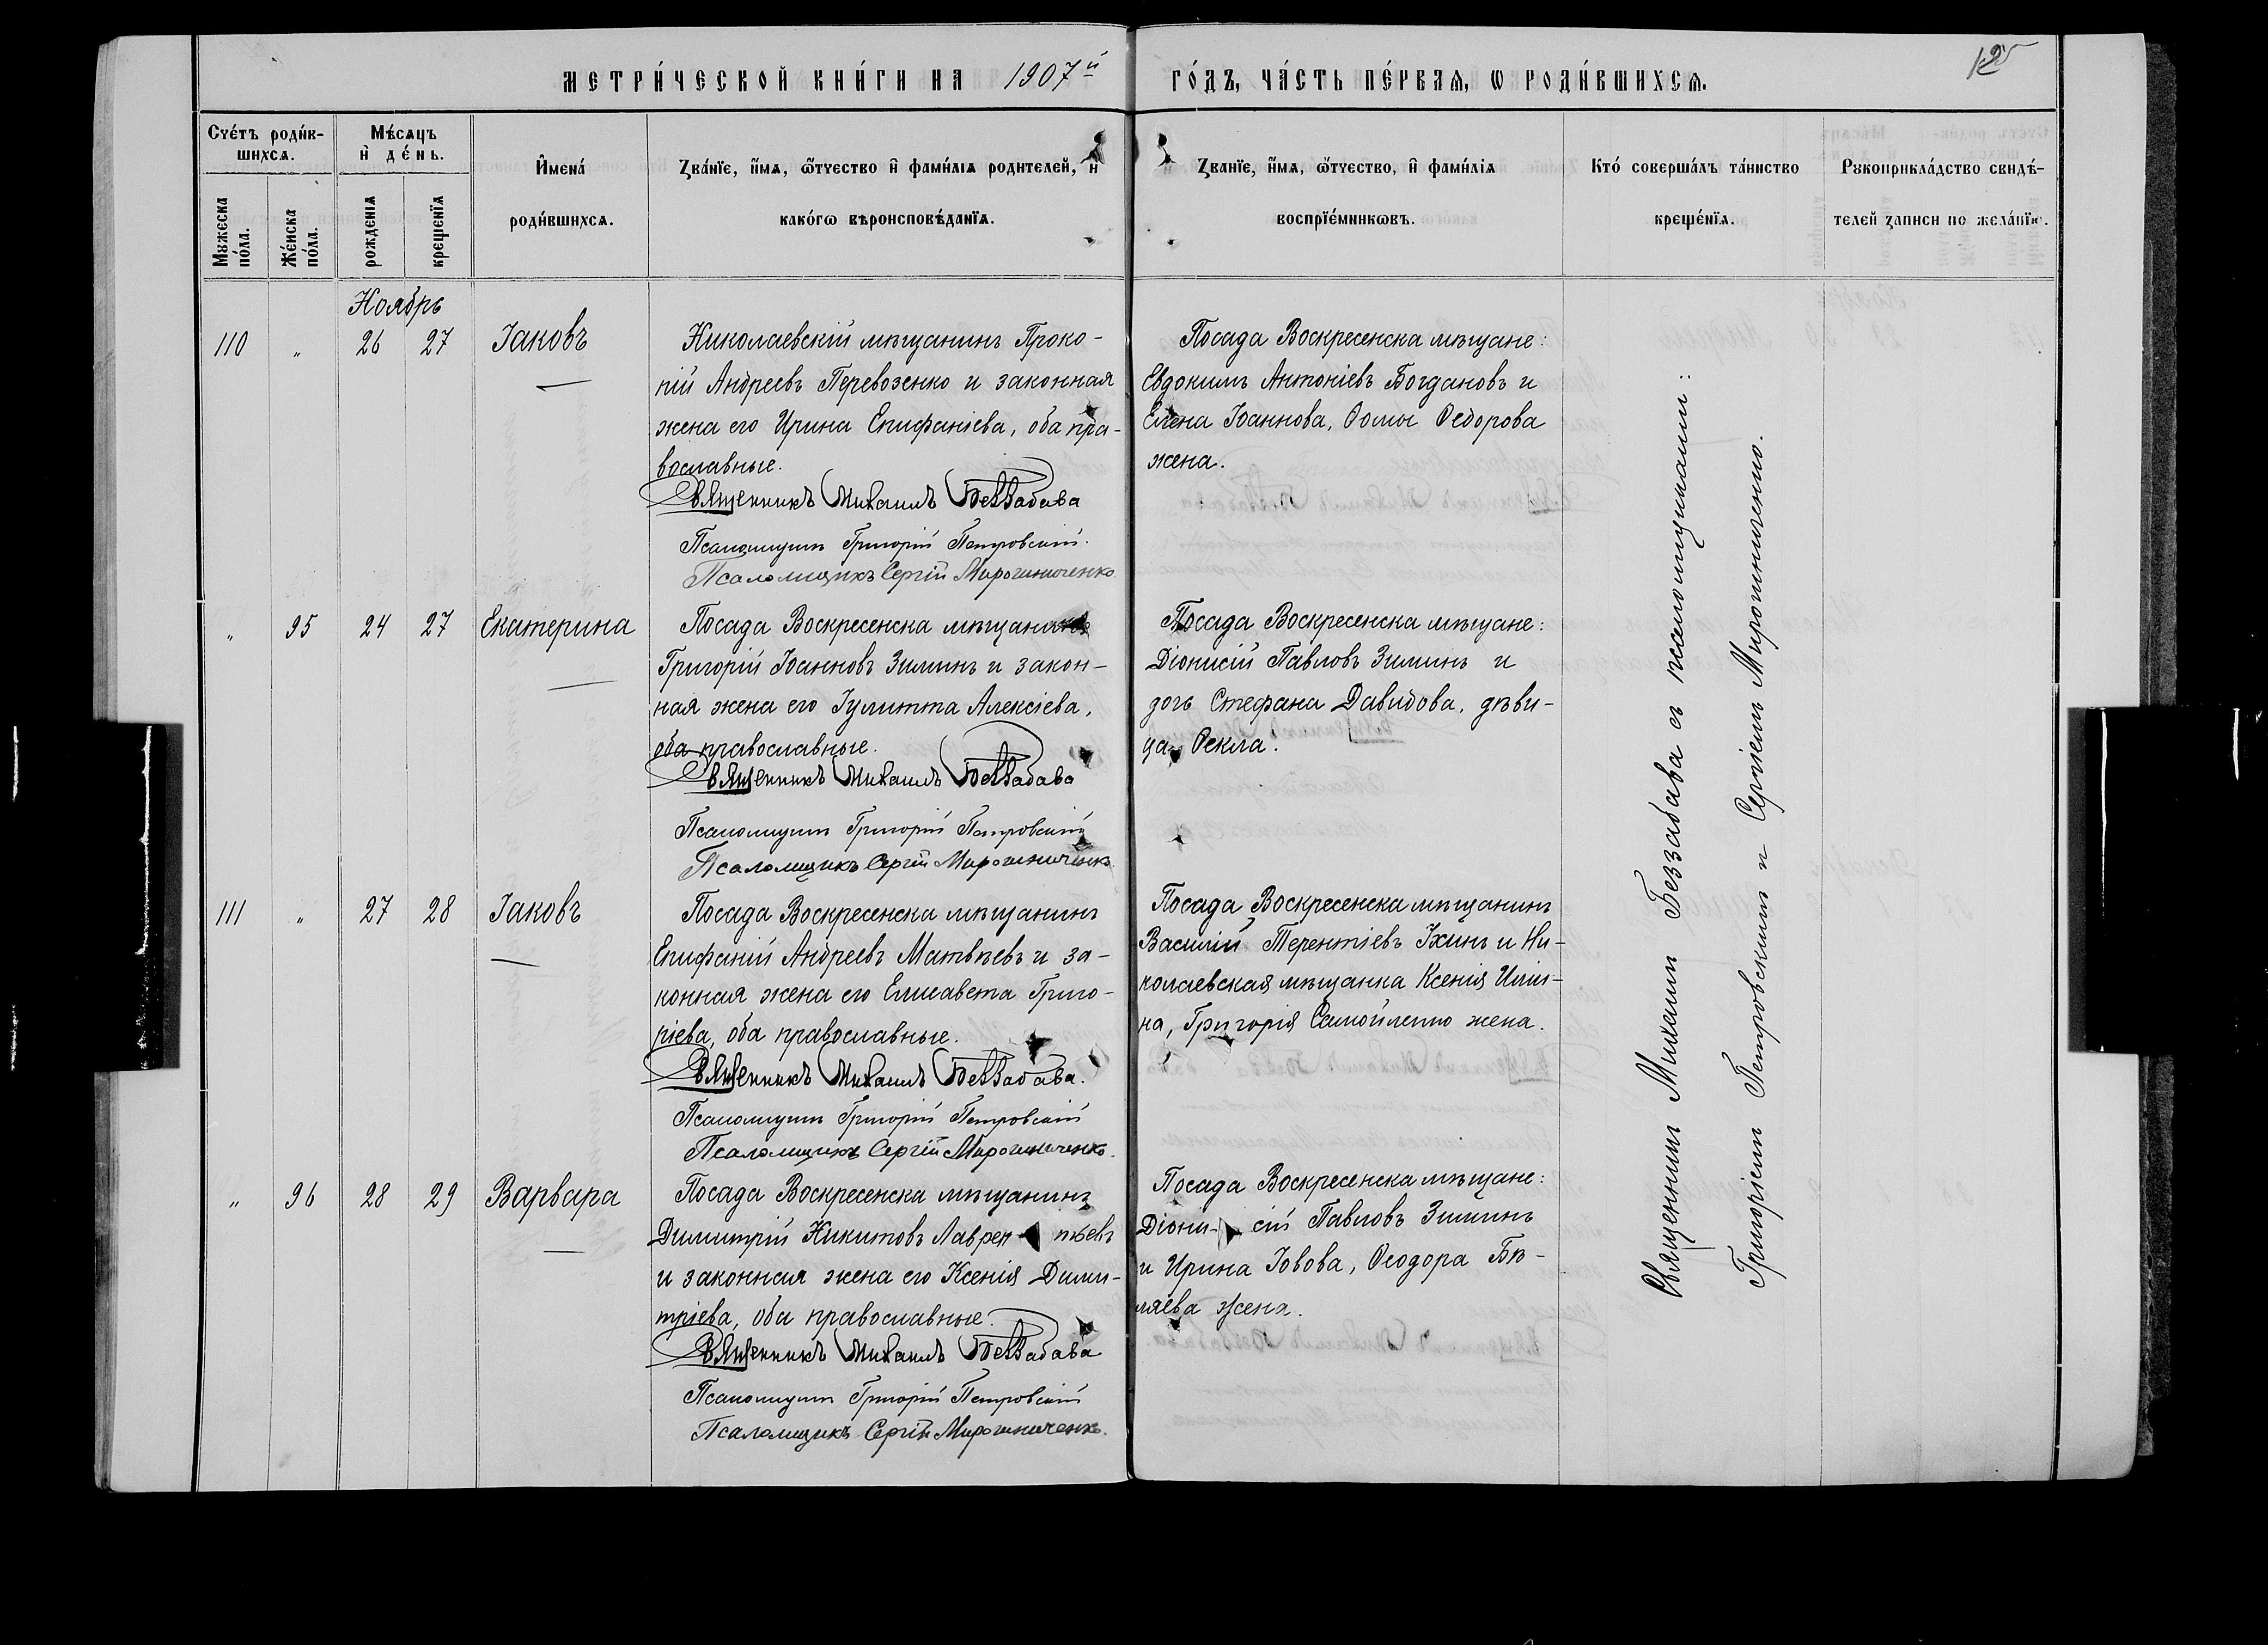 МЕТРИ́ЧЕСКОЙ КНИ́ГИ НА 1907й ГО́ДЪ, ЧА́СТЬ ПЕ́РВАѦ, Ѡ РОДИ́ВШИХСѦ.
Сче́тъ роди́в-
шихсѧ.
Мꙋжеска
по́ла.
Же́нска
по́ла.
Мѣ́сѧцъ
и҆ де́нь.
рожденїѧ
крещенїѧ
И҆мена́
роди́вшихсѧ.
Ꙁва́нїе, и҆́мѧ, ѻ҆́тчество и҆ фами́лїѧ родителей, и҆
како́гѡ вѣроисповѣ́данїѧ.
Ꙁванїе, и҆́мѧ, ѻ҆́тчество, и҆ фами́лїѧ
воспрїе́мникѡвъ.
Кто́ соверша́лъ та́инство
креще́нїѧ.
Рꙋкоприкла́дство свидѣ́-
телей ꙁаписи по жела́нїю.
Ноябрь
110 " 26 27 Іаковъ
Николаевскій мѣщанинъ Проко-
пій Андреевъ Перевозенко и законная
жена его Ирина Епифаніева, оба пра-
вославные.
Священникъ Михаилъ Беззабава
Псаломщикъ Григорій Петровскій.
Псаломщикъ Сергій Мирошниченко
Посада Воскресенска мѣщане:
Евдокимъ Антоніевъ Богдановъ и
Елена Іоаннова, Ѳомы Ѳедорова
жена.
" 95 24 27 Екатерина
Посада Воскресенска мѣщанинъ
Григорій Іоанновъ Зиминъ и закон-
ная жена его Іулитта Алексіева,
оба православные.
Священникъ Михаилъ Беззабава
Псаломщикъ Григорій Петровскій
Псаломщикъ Сергій Мирошниченко
Посада Воскресенска мѣщане:
Діонисій Павловъ Зиминъ и
дочь Стефана Давидова, дѣви-
ца Ѳекла.
111 " 27 28 Іаковъ
Посада Воскресенска мѣщанинъ
Епифаній Андреевъ Матвѣевъ и за-
конная жена его Елисавета Григо-
ріева, оба православные.
Священникъ Михаилъ Беззабава.
Псаломщикъ Григорій Петровскій
Псаломщикъ Сергій Мирошниченко.
Посада Воскресенска мѣщанинъ
Василій Терентіевъ и Ни-
колаевская мѣщанка Ксенія Ильи-
на, Григорія Самойленко жена.
" 96 28 29 Варвара
Посада Воскресенска мѣщанинъ
Димитрій Никитовъ Лаврен-тьевъ
и законная жена его Ксенія Дими-
тріева, оба православные.
Священникъ Михаилъ Беззабава
Псаломщикъ Григорій Петровскій
Псаломщикъ Сергій Мирошниченко.
Посада Воскресенска мѣщане:
Діони-сій Павловъ Зиминъ
и Ирина Іовова, Ѳеодора Бѣ-
ляева жена.
Священникъ Михаилъ Беззабава съ псаломщиками:
Григоріемъ Петровскимъ и Сергіемъ Мирошниченко.